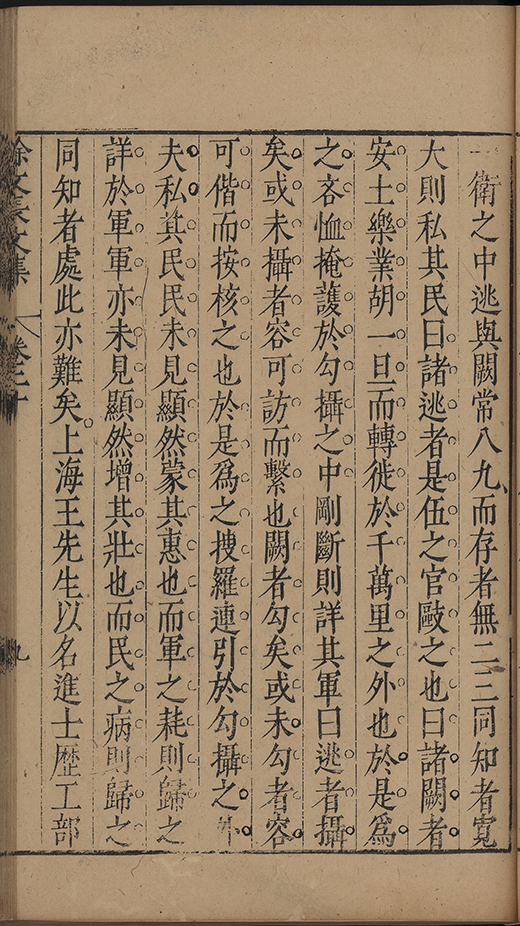 一衛之中逃與闕常八九而存者無二三同知者寬
大則私其民曰諸逃者是伍之官毆之也曰諸闕者
安土樂業胡一旦而轉徙於千萬里之外也於是爲
之吝恤掩護於勾攝之中剛斷則詳其軍曰逃者攝
矣或未攝者容可訪而繫也闕者勾矣或未勾者容
可偕而按核之也於是爲之搜羅連引於勾攝之外
夫私其民民未見顯然蒙其惠也而軍之耗則歸之
詳於軍軍亦未見顯然增其壯也而民之病則歸之
同知者處此亦難矣上海王先生以名進士歷工部
徐文長文集 卷二十 九